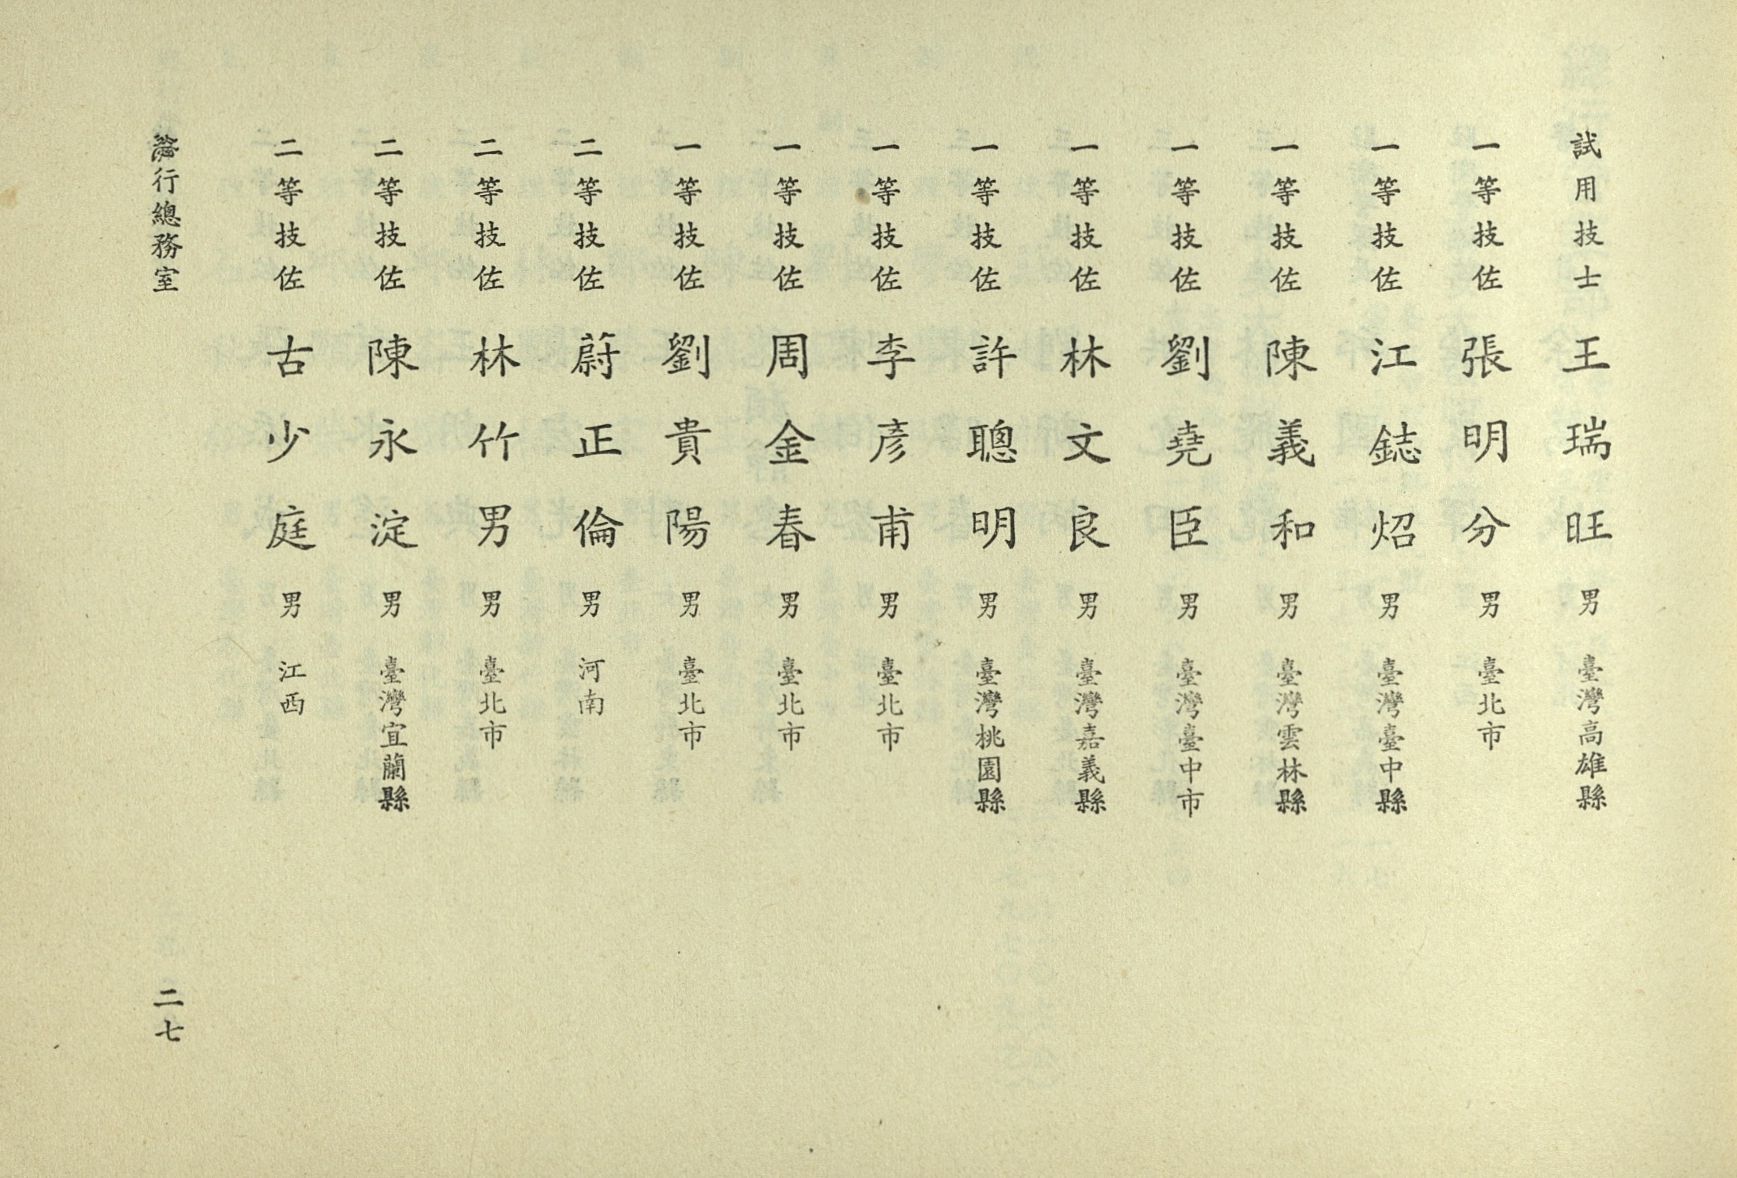 試用技士 王瑞旺 男 臺灣高雄縣
一等技佐 張明分 男 臺北市
一等技佐 江鋕炤 男 臺灣臺中縣
一等技佐 陳義和 男 臺灣雲林縣
一等技佐 劉堯臣 男 臺灣臺中市
一等技佐 林文良 男 臺灣嘉義縣
一等技佐 許聰明 男 臺灣桃園縣
一等技佐 李彥甫 男 臺北市
一等技佐 周金春 男 臺北市
一等技佐 劉貴陽 男 臺北市
二等技佐 蔚正倫 男 河南
二等技佐 林竹男 男 臺北市
二等技佐 陳永淀 男 臺灣宜蘭縣
二等技佐 古少庭 男 江西
行總務室 二七